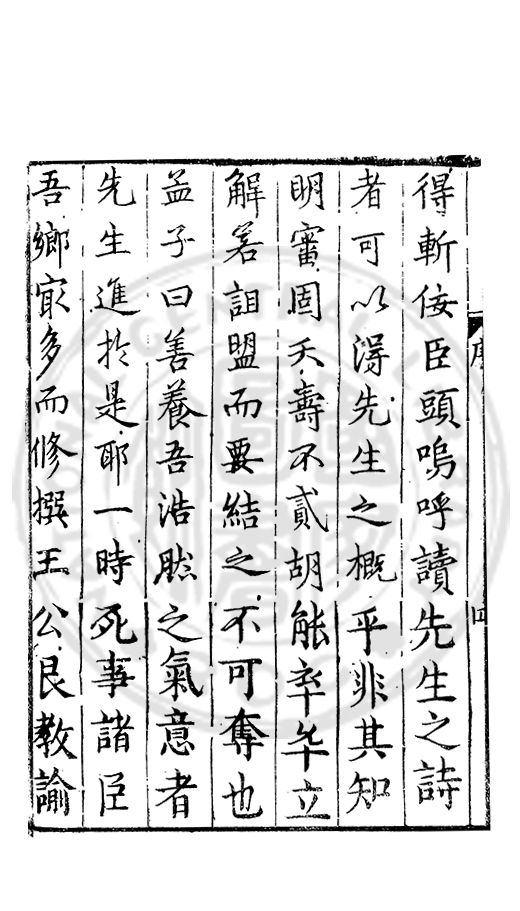 得斬佞臣頭嗚呼讀先生之詩
者可以淂先生之概乎非其知
明審固夭壽不貳胡能卒卒立
解若詛盟而要結之不可奪也
孟子曰善養吾浩然之氣意者
先生進扵是耶一時死事諸臣
吾鄉㝡多而修撰王公艮教諭
序
四